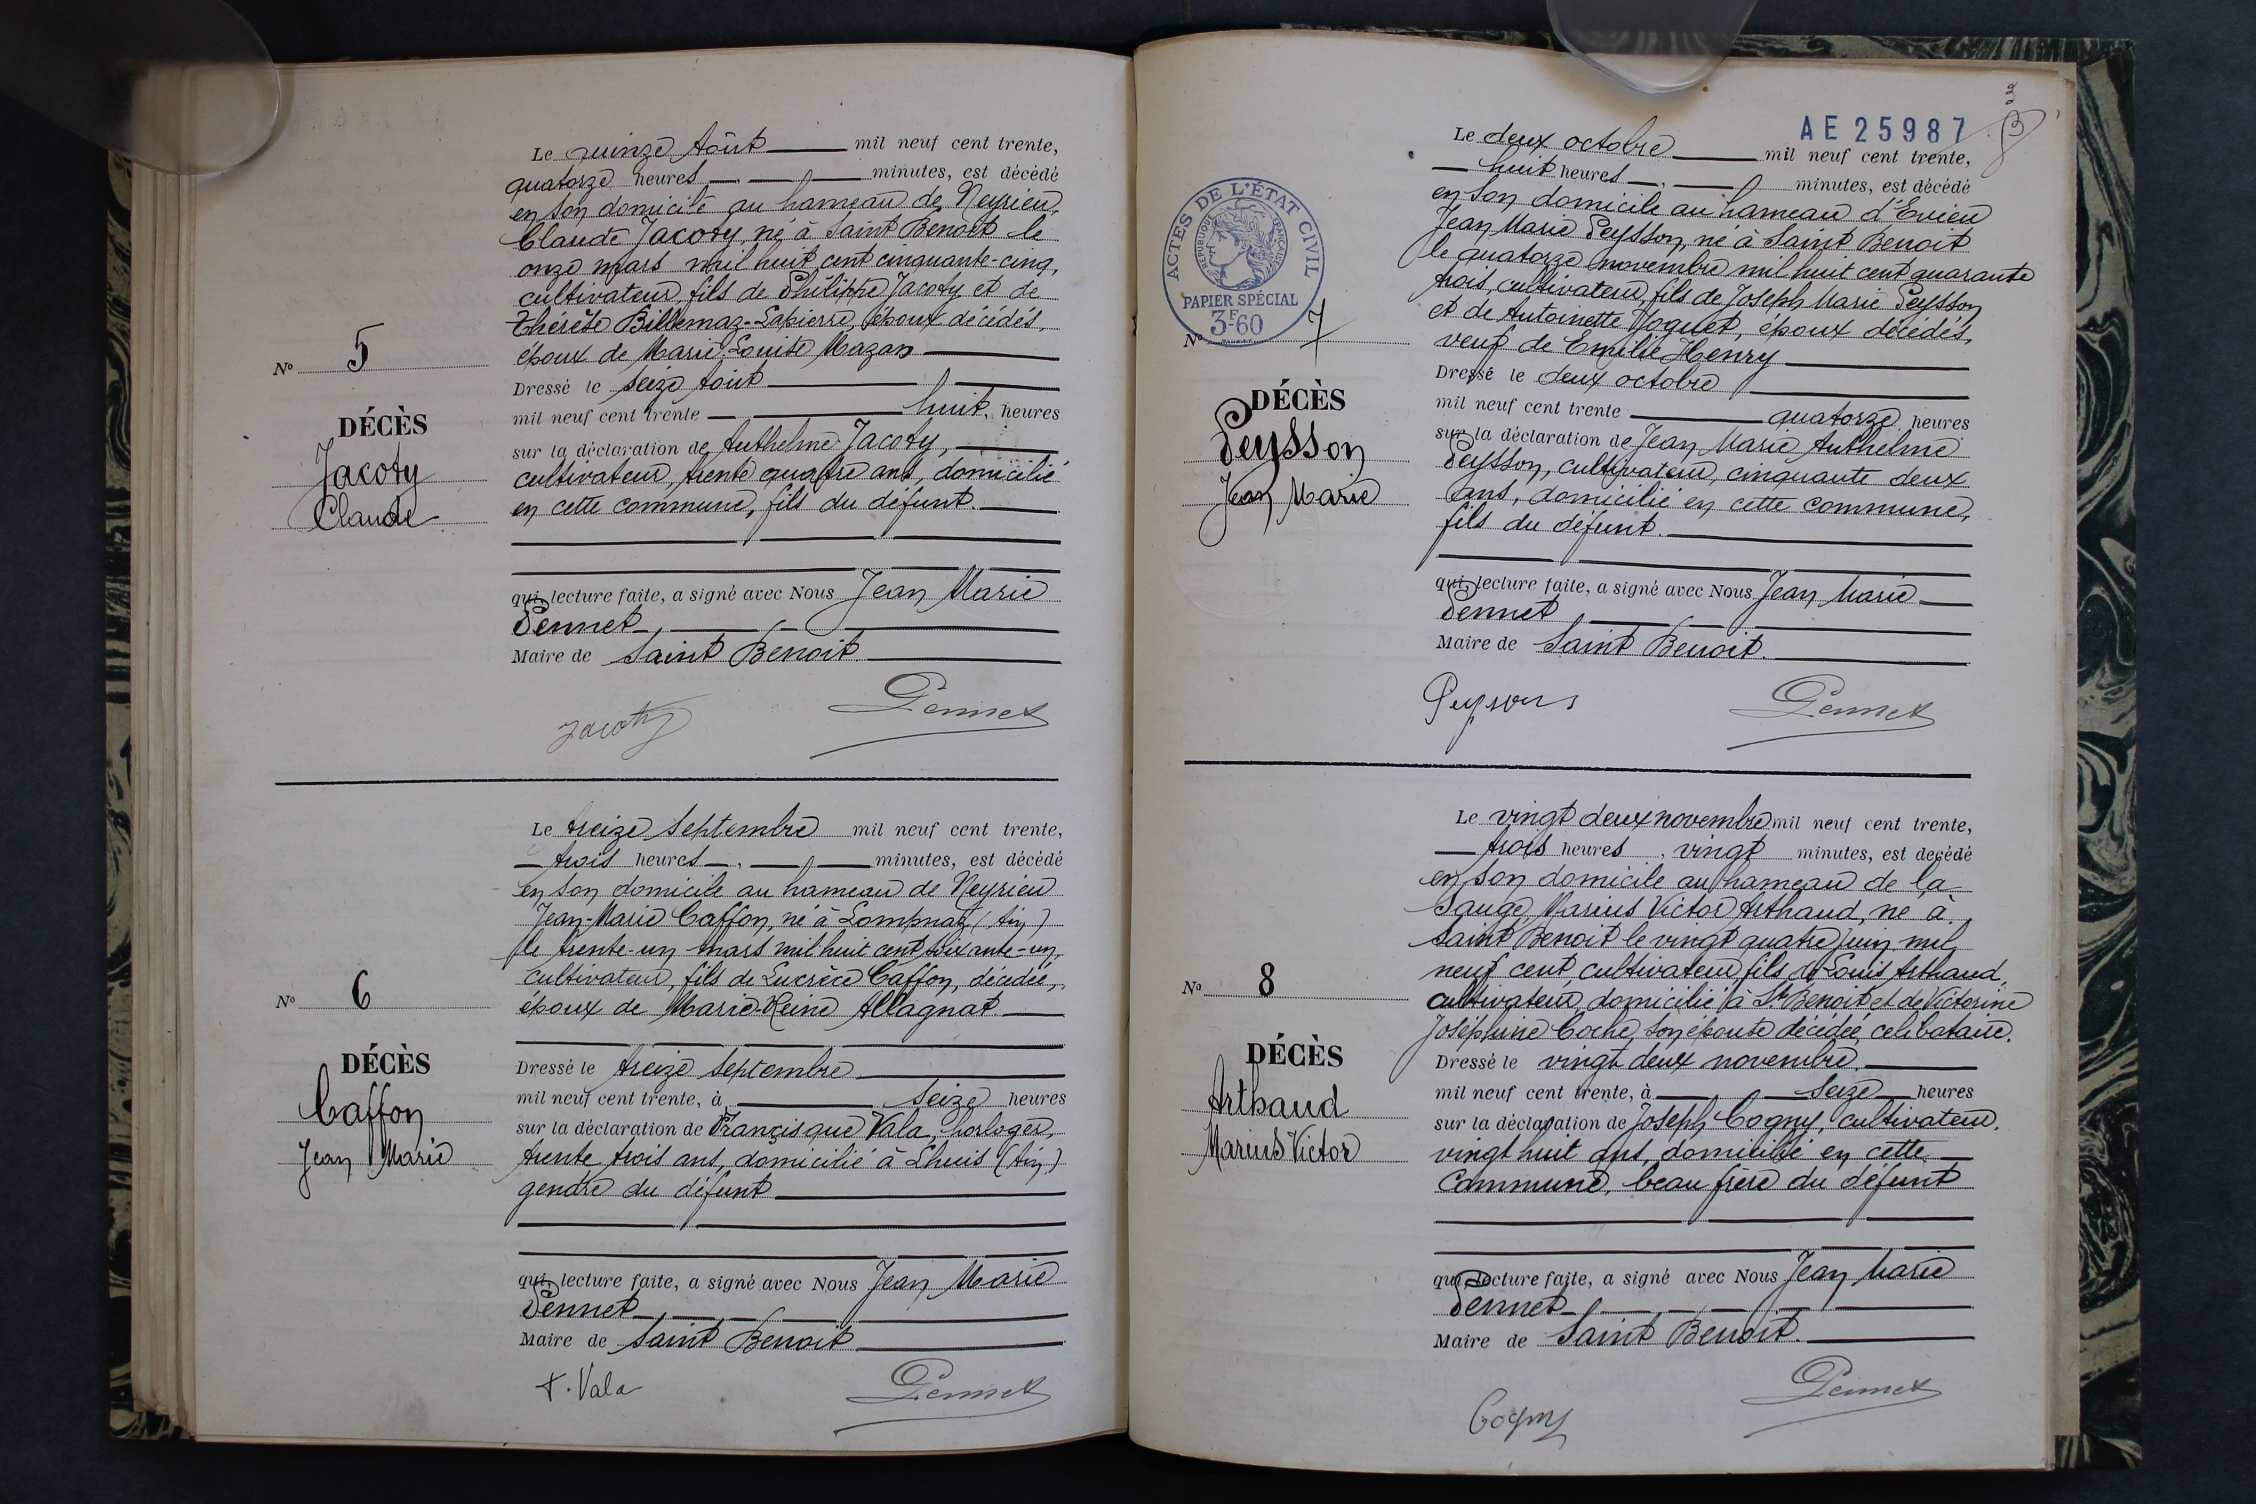 Le quinze Août mil neuf cent trente,
quatorze heures minutes, est décédé
en son domicile au hameau de Neyrieu,
Claude Jacoty, né à Saint Benoit le
onze mars mil huit cent cinquante-cinq,
cultivateur, fils de Philippe Jacoty et de
Thérèse Billemaz-Lapierre, époux décédés,
époux de Marie Louise Mazan
Nº 5
Dressé le seize Août
mil neuf cent trente huit heures
DÉCÈS
Jacoty
Claude
sur la déclaration de Anthelme Jacoty,
cultivateur, trente quatre ans, domicilié
en cette commune, fils du défunt.
qui, lecture faite, a signé avec Nous Jean Marie
Pennet
Maire de Saint Benoit
Jacoty Pennet
Le treize Septembre mil neuf cent trente,
trois heures minutes, est décédé
en son domicile au hameau de Neyrieu
Jean-Marie Caffon, né à Lompnaz (Ain)
le trente-un mars mil huit cent soixante-un,
cultivateur, fils de Lucrèce Caffon, décédée,
époux de Marie-Reine Allagnat.
Nº 6
DÉCÈS
Caffon
Jean Marie
Dressé le treize Septembre
mil neuf cent trente, à seize heures
sur la déclaration de Françisque Vala, horloger,
trente trois ans, domicilié à Lhuis (Ain)
gendre du défunt
qui, lecture faite, a signé avec Nous Jean Marie
Pennet
Maire de Saint Benoit
F. Vala Pennet
AE 25987
Le deux octobre mil neuf cent trente,
huit heures minutes, est décédé
en son domicile au hameau d'Evieu
Jean Marie Peysson, né à Saint Benoit
le quatorze novembre mil huit cent quarante
trois, cultivateur, fils de Joseph Marie Peysson
et de Antoinette Voguet, époux décédés,
veuf de Emilie Henry
ACTES DE L'ÉTAT CIVIL
RÉPUBLIQUE FRANÇAISE
PAPIER SPÉCIAL
3F60
Nº 7
DÉCÈS
Peysson
Jean Marie
Dressé le deux octobre
mil neuf cent trente quatorze heures
sur la déclaration de Jean Marie Anthelme
Peysson, cultivateur, cinquante deux
ans, domicilié en cette commune,
fils du défunt.
qui, lecture faite, a signé avec Nous Jean Marie
Pennet
Maire de Saint Benoit.
Peysson Pennet
Le vingt deux novembre mil neuf cent trente,
trois heures vingt minutes, est décédé
en son domicile au hameau de la
Sauge, Marius Victor Arthaud, né à
Saint Benoit le vingt quatre Juin mil
neuf cent, cultivateur, fils de Louis Arthaud,
cultivateur, domicilié à St Benoit et de Victorine
Joséphine Coche, son épouse décédée, célibataire.
Nº 8
DÉCÈS
Arthaud
Marius Victor
Dressé le vingt deux novembre.
mil neuf cent trente, à seize heures
sur la déclaration de Joseph Cogny, cultivateur,
vingt huit ans, domicilié en cette
commune, beau frère du défunt
qui, lecture faite, a signé avec Nous Jean Marie
Pennet
Maire de Saint Benoit.
Cogny Pennet